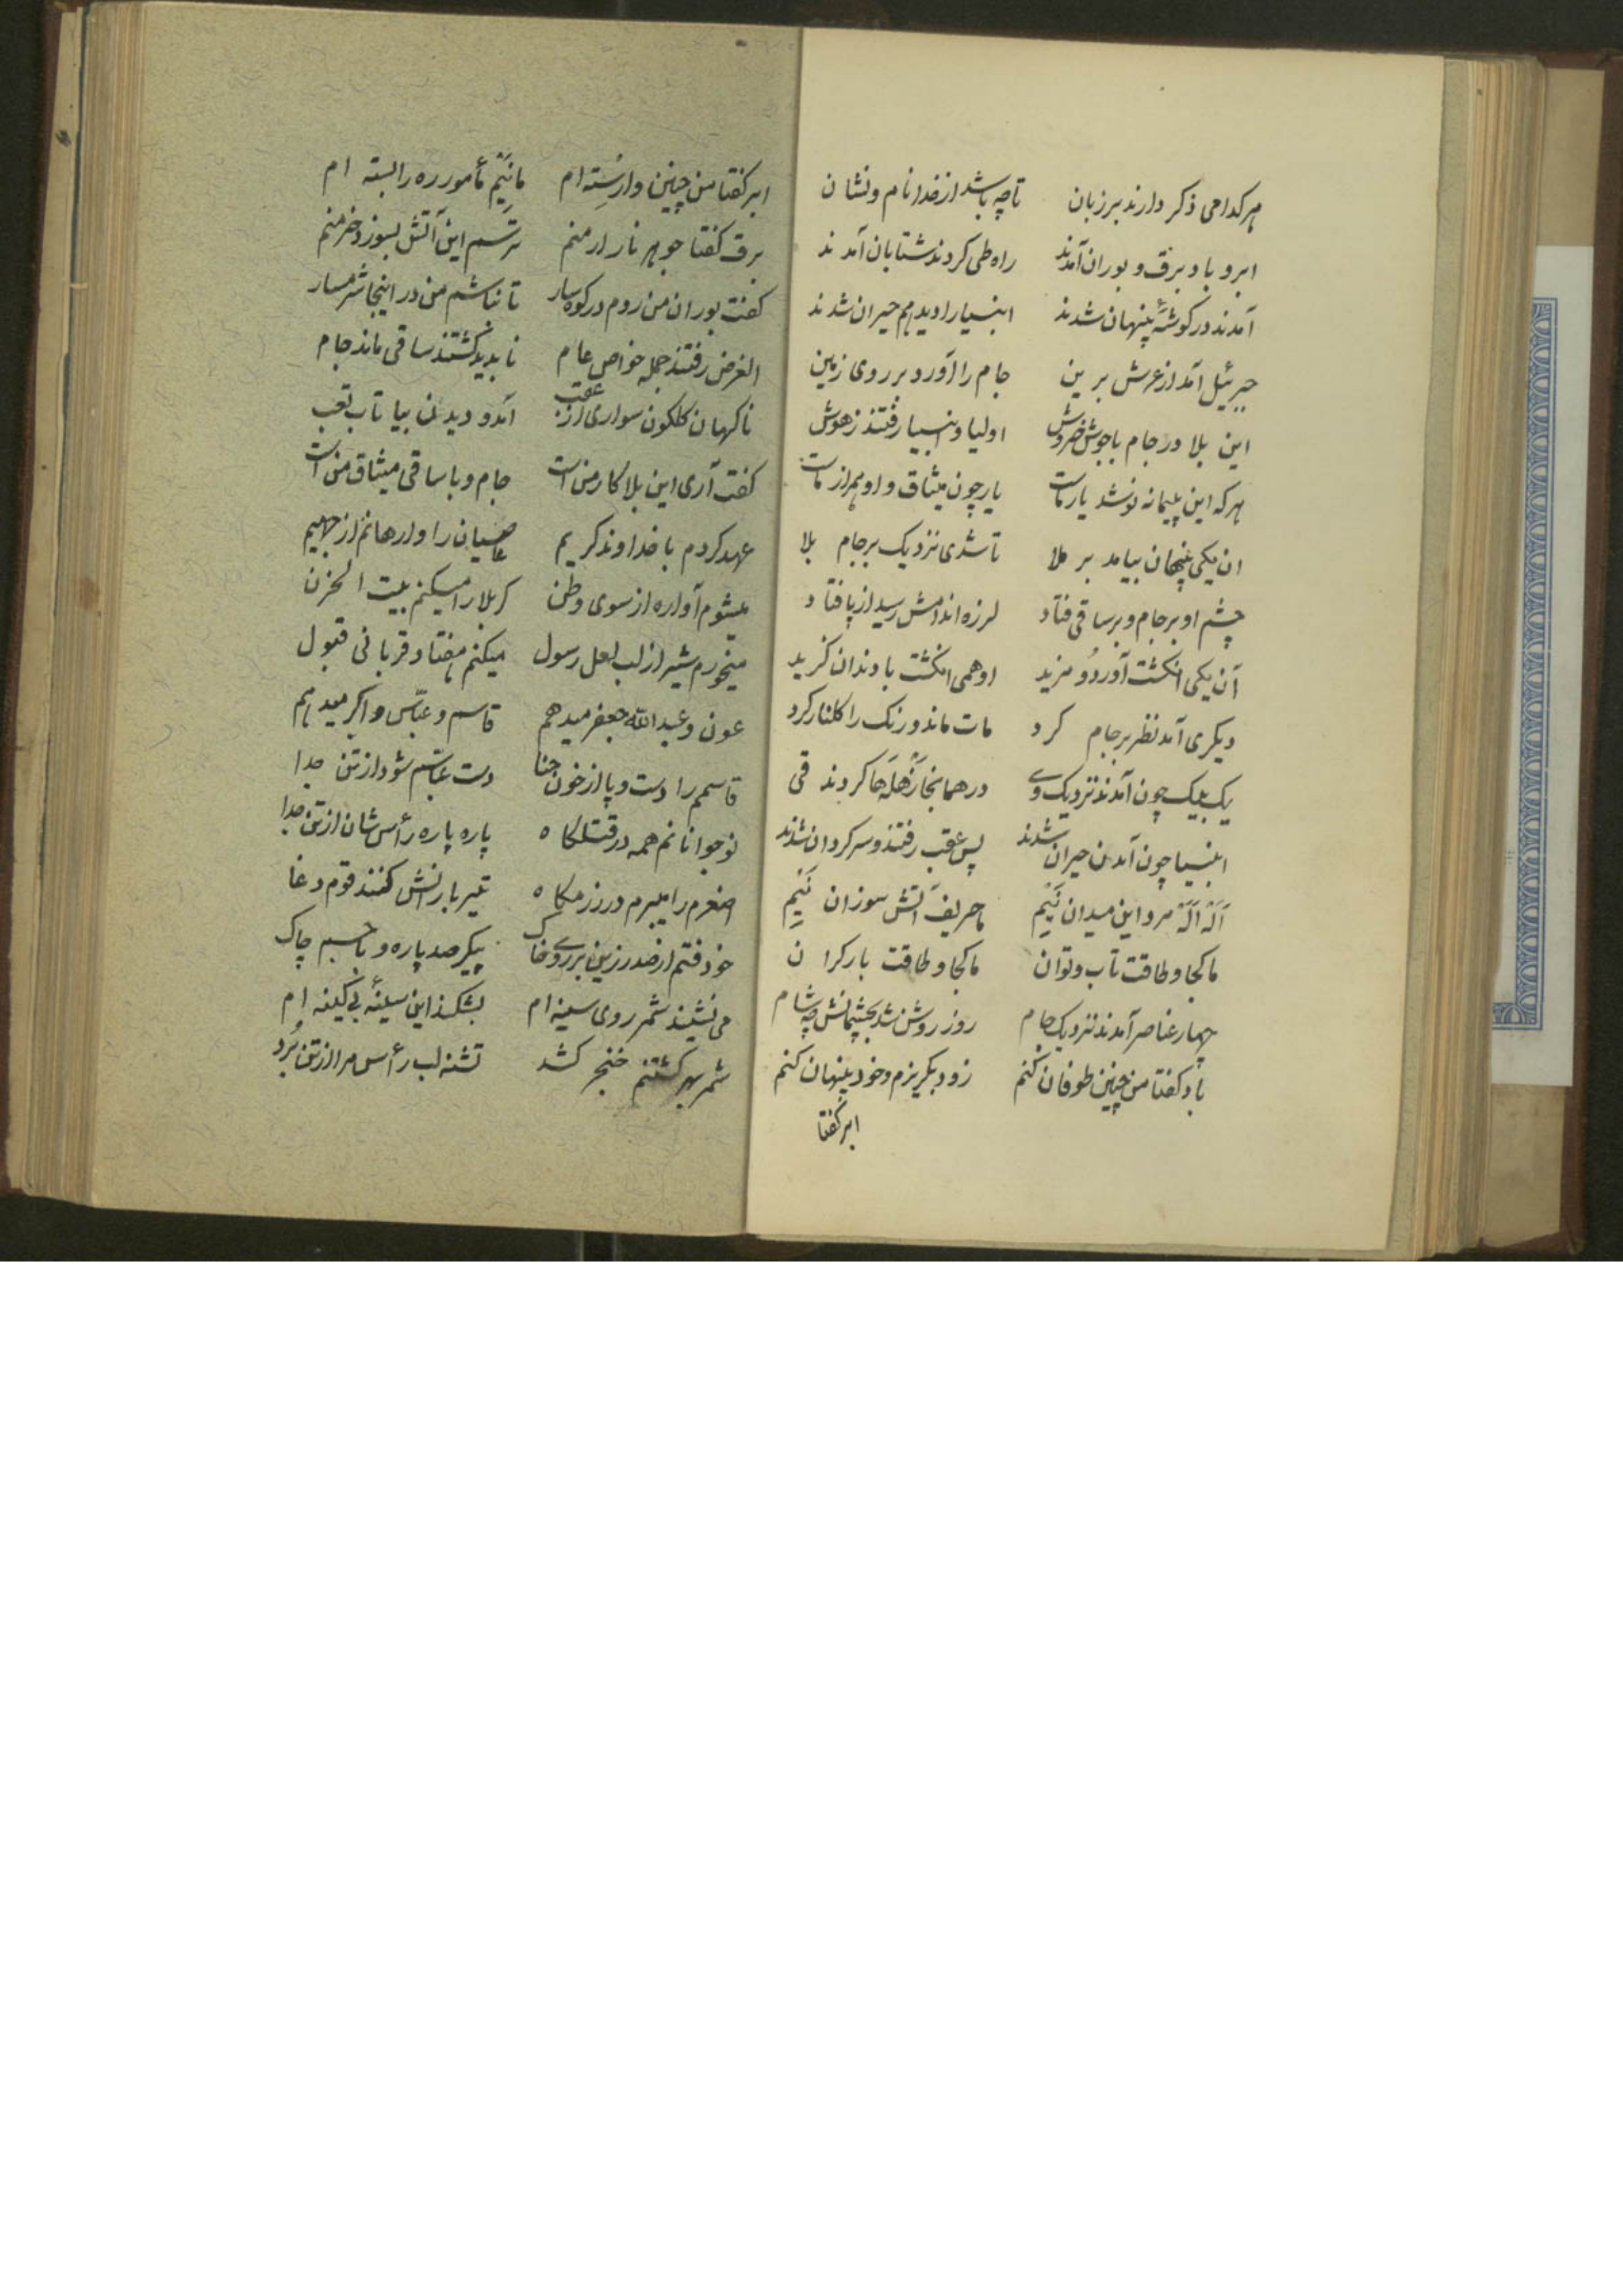 هرکدامی ذکر دارند بر زبان تا چه باشد از خدا نام و نشان
ابر و باد و برق و بوران آمدند راه طی کردند شتابان آمدند
آمدند در کوشهٔ پنهان شدند انبیا را دید هم حیران شدند
جبرئیل آمد از عرش برین جام را آورد بر روی زمین
این بلا در جام با جوش خروش اولیا و انبیا رفتند ز هوش
هرکه این پیمانه نوشد یار ماست یار چون میثاق و او هم از ماست
ان یکی پنهان بیامد بر ملا تا شدی نزدیک بر جام بلا
چشم او بر جام و بر ساقی فتاد لرزه اندامش رسید از پا فتاد
آن یکی انکشت آورد و مزید او همی انکشت با دندان کزید
دیکری آمد نظر بر جام کرد مات ماند و رنک را کلنار کرد
یک بیک چون آمدند نزدیک وی در همانجا زهله‌ها کردند قی
انبیا چون آمدن حیران شدند پس عقب رفتند و سرکردان شدند
اَلَهْ اَلَهْ مرد این میدان نَئیم ما حریف آتش سوزان نَئیم
ما کجا و طاقت تاب و توان ما کجا و طاقت بار کران
چهار عناصر آمدند نزدیک جام روز روشن شد بچشمانش چه شام
باد کفتا من چنین طوفان کنم زود بکریزم و خود پنهان کنم
ابر کفتا
ابر کفتا من چنین وارسته‌ام ما نئیم مأمور ره را بسته ام
برق کفتا جوهر نار ار منم ترسم این آتش بسوزد خرمنم
کفت بوران من روم در کوه‌سار تا نباشم من در اینجا شرمسار
الغرض رفتند جمله خواص عام ناپدید کشتند ساقی ماند جام
ناکهان کلکون سواری از عقب آمد و دیدن بیا تاب تعب
کفت آری این بلا کار من است جام و با ساقی میثاق من است
عهد کردم با خداوند کریم عاصیان را وارهانم از جهیم
میشوم آواره از سوی وطن کربلا را میکنم بیت الحزن
میخورم شیر از لب لعل رسول میکنم هفتاد قربانی قبول
عون و عبدالله جعفر میدهم قاسم و عباس و اکبر میدهم
قاسمم را دست و پا از خون حنا دست عباسم شود از تن جدا
نوجوانانم همه در قتلکاه پاره پاره رأس شان از تن جدا
اصغرم را میبرم در رزمکاه تیر بارانش کنند قوم دغا
خود فتم از صدر زین بر روی خاک پیکر صد پاره و با جسم چاک
می نشیند شمر روی سینه ام بشکند این سینهٔ بی کینه ام
شمر بهر کشتنم خنجر کشد تشنه لب رأس مرا از تن بُرد